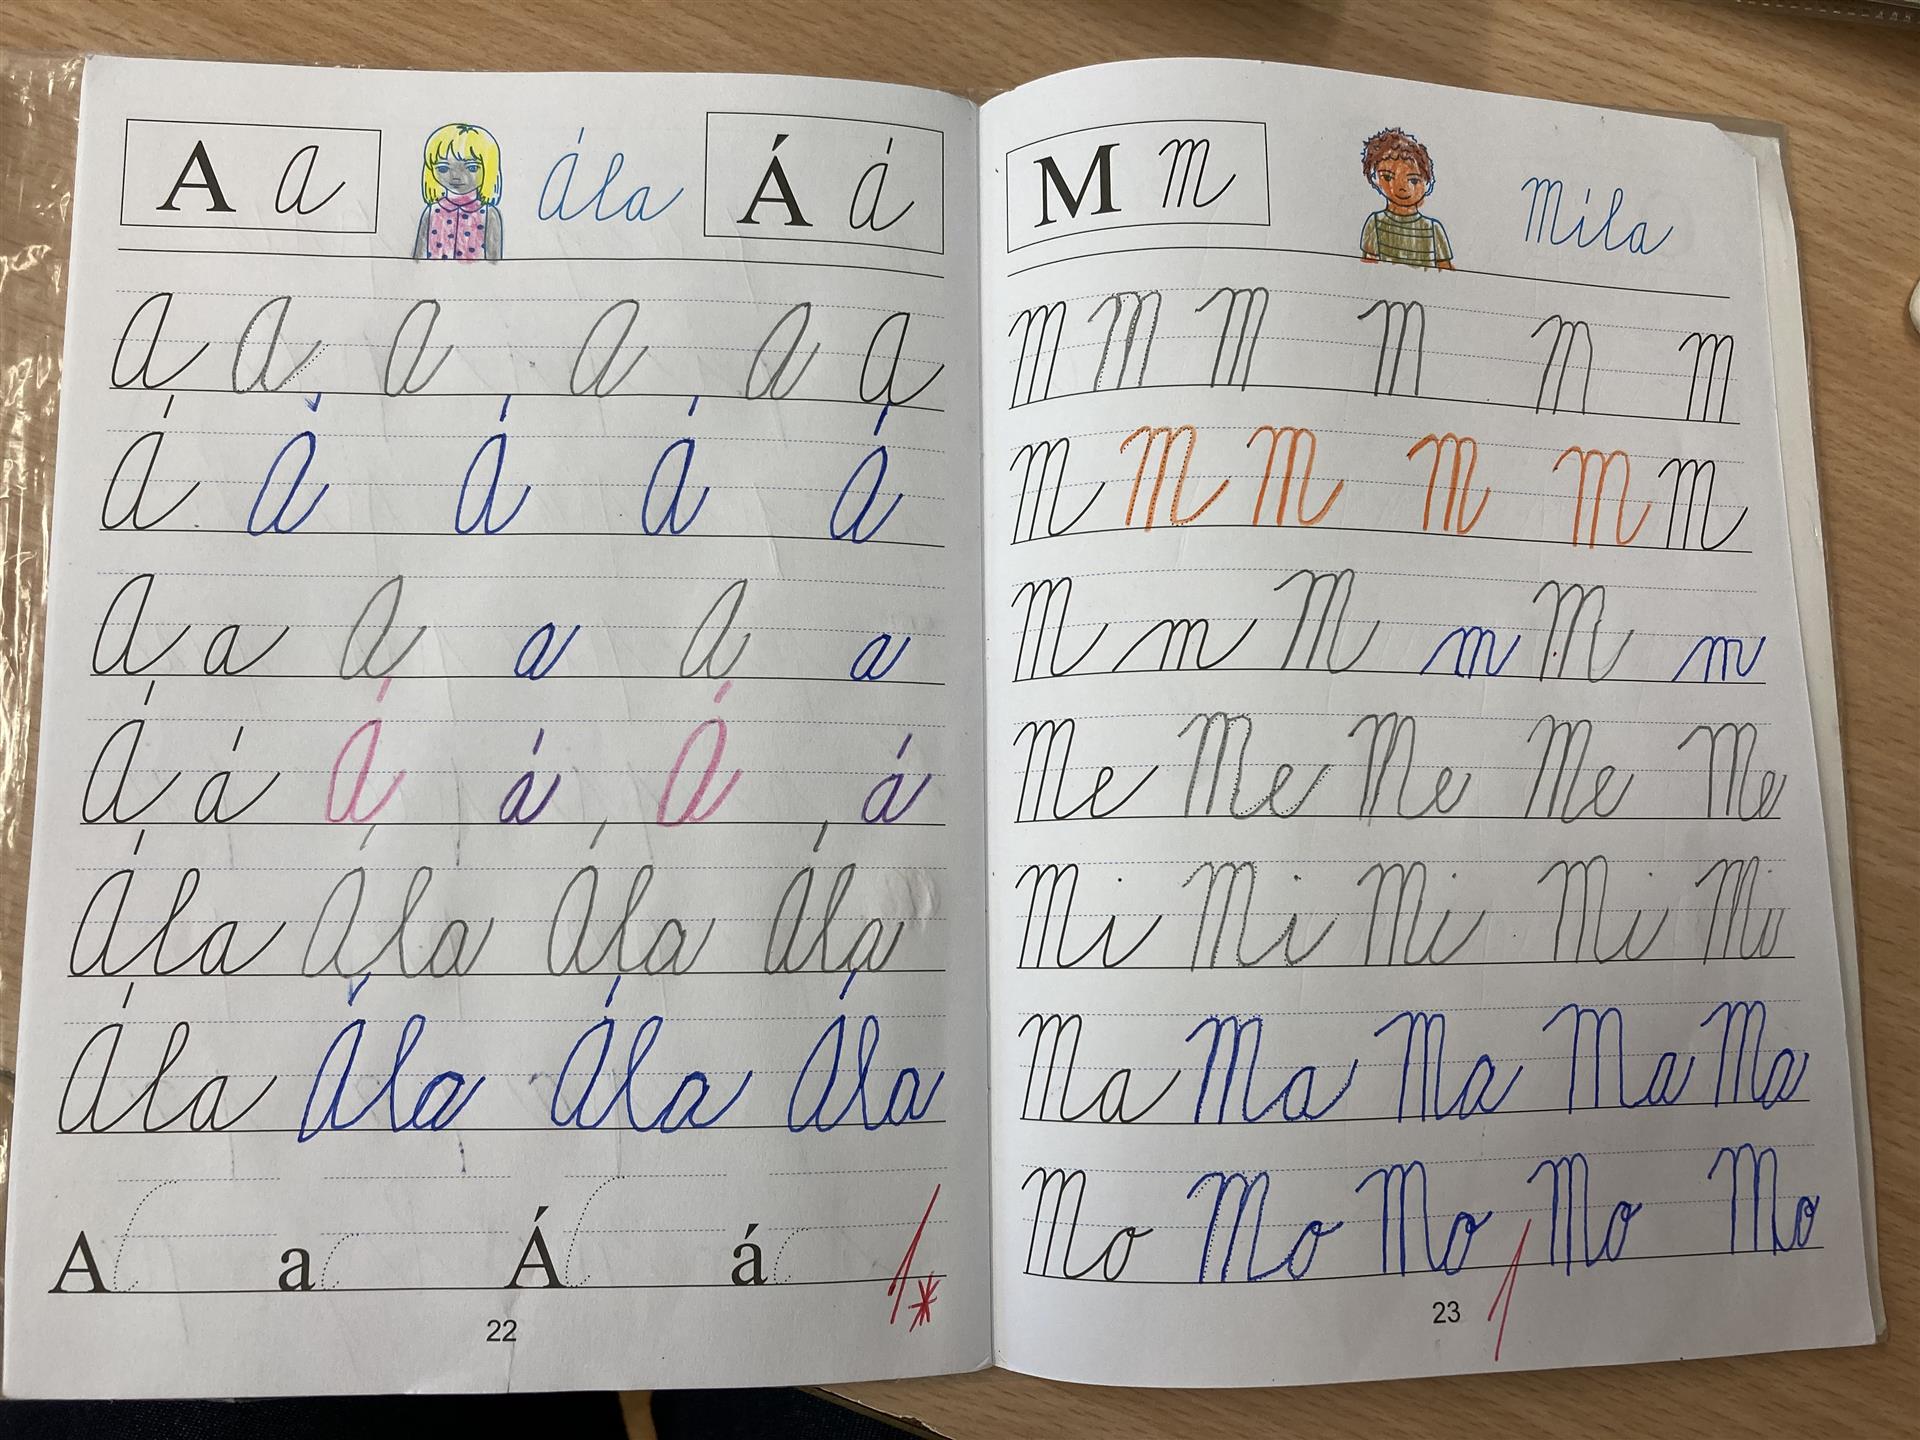 A a Ála Á á
A A A A A A
Á Á Á Á Á
A a A a A a
Á á Á á Á á
Ála Ála Ála Ála
Ála Ála Ála Ála
A a Á á 1*
22
M m Míla
M M M M M M
M M M M M M
M m M m M m
Me Me Me Me Me
Mi Mi Mi Mi Mi
Ma Ma Ma Ma Ma
Mo Mo Mo Mo Mo
23 1